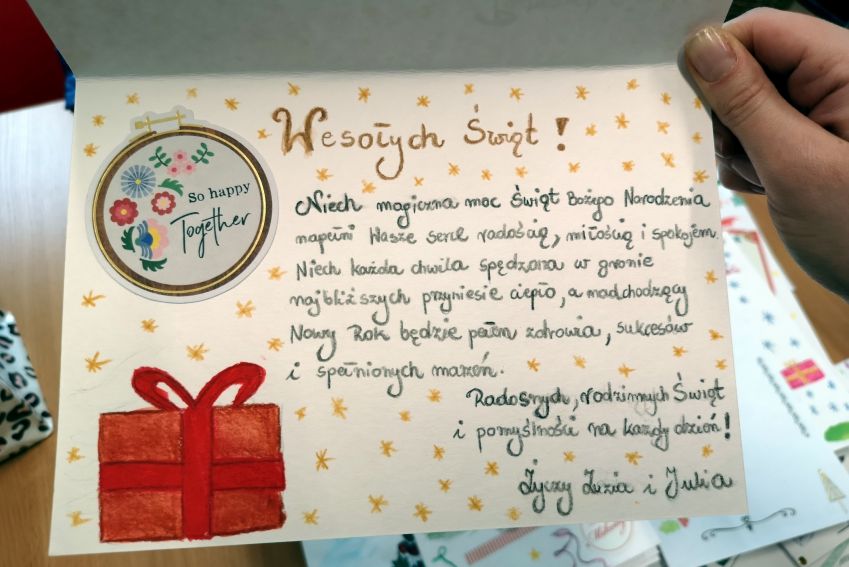 So happy
Together
Wesołych Świąt!
Niech magiczna moc Świąt Bożego Narodzenia
napełni Wasze serce radością, miłością i spokojem.
Niech każda chwila spędzona w gronie
najbliższych przyniesie ciepło, a nadchodzący
Nowy Rok będzie pełen zdrowia, sukcesów
i spełnionych marzeń.
Radosnych, rodzinnych Świąt
i pomyślności na każdy dzień!
Życzy Luzia i Julia